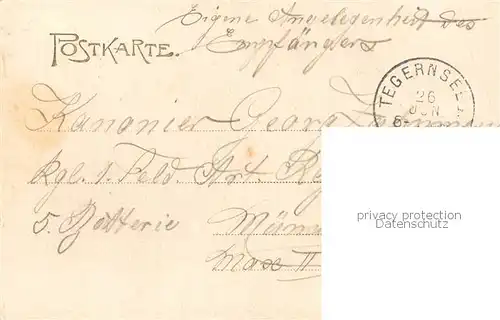 Eigene Angelegenheit des
Empfängers
POSTKARTE.
TEGERNSEE
26
JUN
Kanonier Georg
Kgl. 1. Feld. Art. Reg
5. Batterie
Max II
privacy protection
Datenschutz